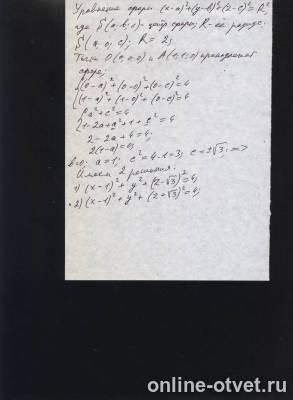 Уравнение сферы (x-a)²+(y-b)²+(z-c)²=R²
где S(a,b,c)- центр сферы, R- её радиус.
S(a,0,c); R=2;
Точки O(0,0,0) и A(1,1,0) принадлежат
сфере;
{(0-a)²+(0-0)²+(0-c)²=4
{(1-a)²+(1-0)²+(0-c)²=4
{a²+c²=4
{1-2a+a²+1+c²=4
2-2a+4=4;
2(1-a)=0;
b=0; a=1; c²=4-1=3; c=±√3; =>
Имеем 2 решения:
1) (x-1)²+y²+(z-√3)²=4;
2) (x-1)²+y²+(z+√3)²=4;
online-otvet.ru